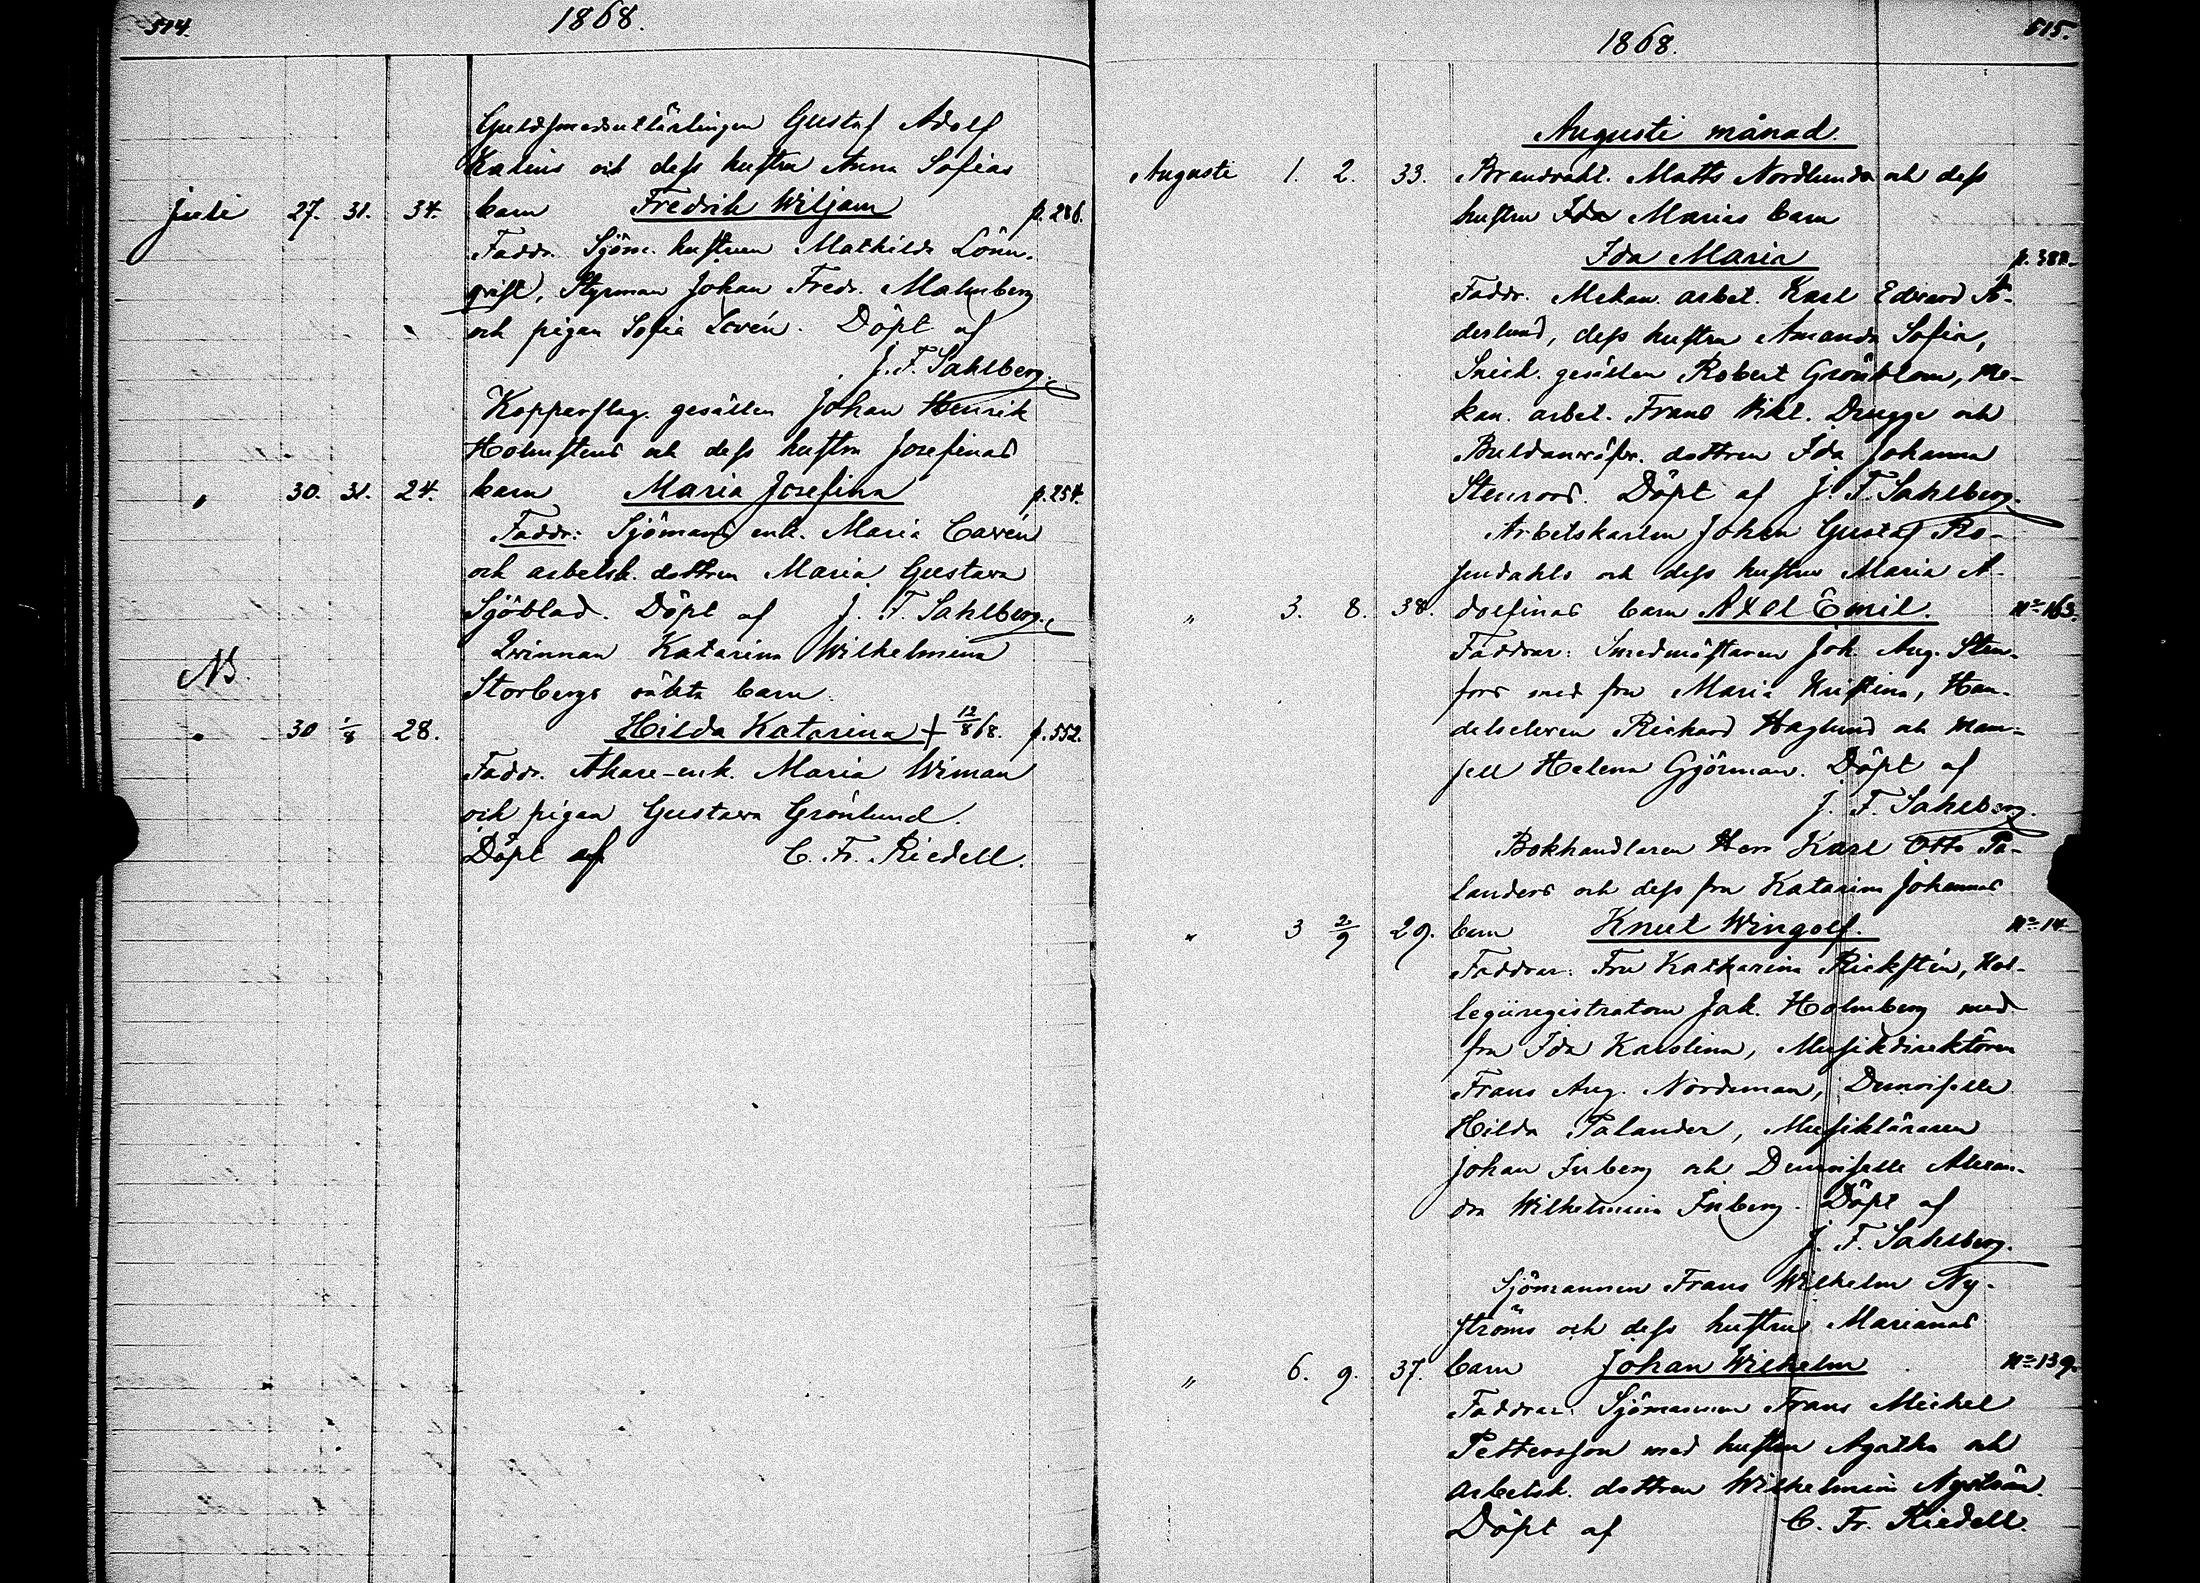 514.
1868.
Guldsmedsutlärlingen Gustaf Adolf
Kalins och dess hustru Anna Sofias
Juli 27. 31. 34. barn Fredrik Wiljam p. 286.
Faddr. Sjöm. hustrun Mathilda Lönn-
qvist, Styrman Johan Fredr. Malmberg
och pigan Sofia Levén. Döpt af
J. F. Sahlberg.
Kopparslag. gesällen Johan Henrik
Holmstens och dess hustru Josefinas
" 30. 31. 24. barn Maria Josefina p. 254.
Faddr: Sjömans enk. Maria Cavén
och arbetsk. dottren Maria Gustava
Sjöblad. Döpt af J. F. Sahlberg.
Qvinnan Katarina Wilhelmina
NB.
Storbergs oäkta barn
" 30 1/8 28. Hilda Katarina + 12/8 68. p. 552.
Faddr. Åkare-enk. Maria Wiman
och pigan Gustava Grönlund.
Döpt af C. Fr. Riedell.
515.
1868.
Augusti månad.
Augusti 1. 2. 33. Brandvakt. Matts Nordlunds och dess
hustru Ida Marias barn
Ida Maria p. 388.
Faddr. Mekan. arbet. Karl Edvard Sö-
derlund, dess hustru Amanda Sofia,
Snick. gesällen Robert Grönblom, Me-
kan. arbet. Frans Vikt. Drugge och
Buldansväfv. dottren Ida Johanna
Stenroos. Döpt af J. F. Sahlberg.
Arbetskarlen Johan Gustaf Ro-
sendahls och dess hustru Maria A-
" 3. 8. 38. dolfinas barn Axel Emil. No 163.
Faddrar: Smedmästaren Joh. Aug. Sten-
fors med fru Maria Kristina, Han-
delseleven Rickard Haglund och Mam-
sell Helena Gjörman. Döpt af
J. F. Sahlberg.
Bokhandlaren Herr Karl Otto Pa-
landers och dess fru Katarina Johannas
" 3 2/9 29. barn Knut Wingolf. No 14
Faddrar: Fru Katharina Rickstén, Kol-
legiiregistratorn Jak. Holmberg med
fru Ida Karolina, Musikdirektören
Frans Aug. Nordeman, Demoiselle
Hilda Palander, Musikläraren
Johan Friberg och Demoiselle Alexan-
dra Wilhelmina Friberg. Döpt af
J. F. Sahlberg.
Sjömannen Frans Wilhelm Ny-
ströms och dess hustru Marianas
" 6. 9. 37. barn Johan Wilhelm No 139.
Faddrar: Sjömannen Frans Mickel
Pettersson med hustru Agatha och
arbetsk. dottren Wilhelmina Nyström.
Döpt af C. Fr. Riedell.